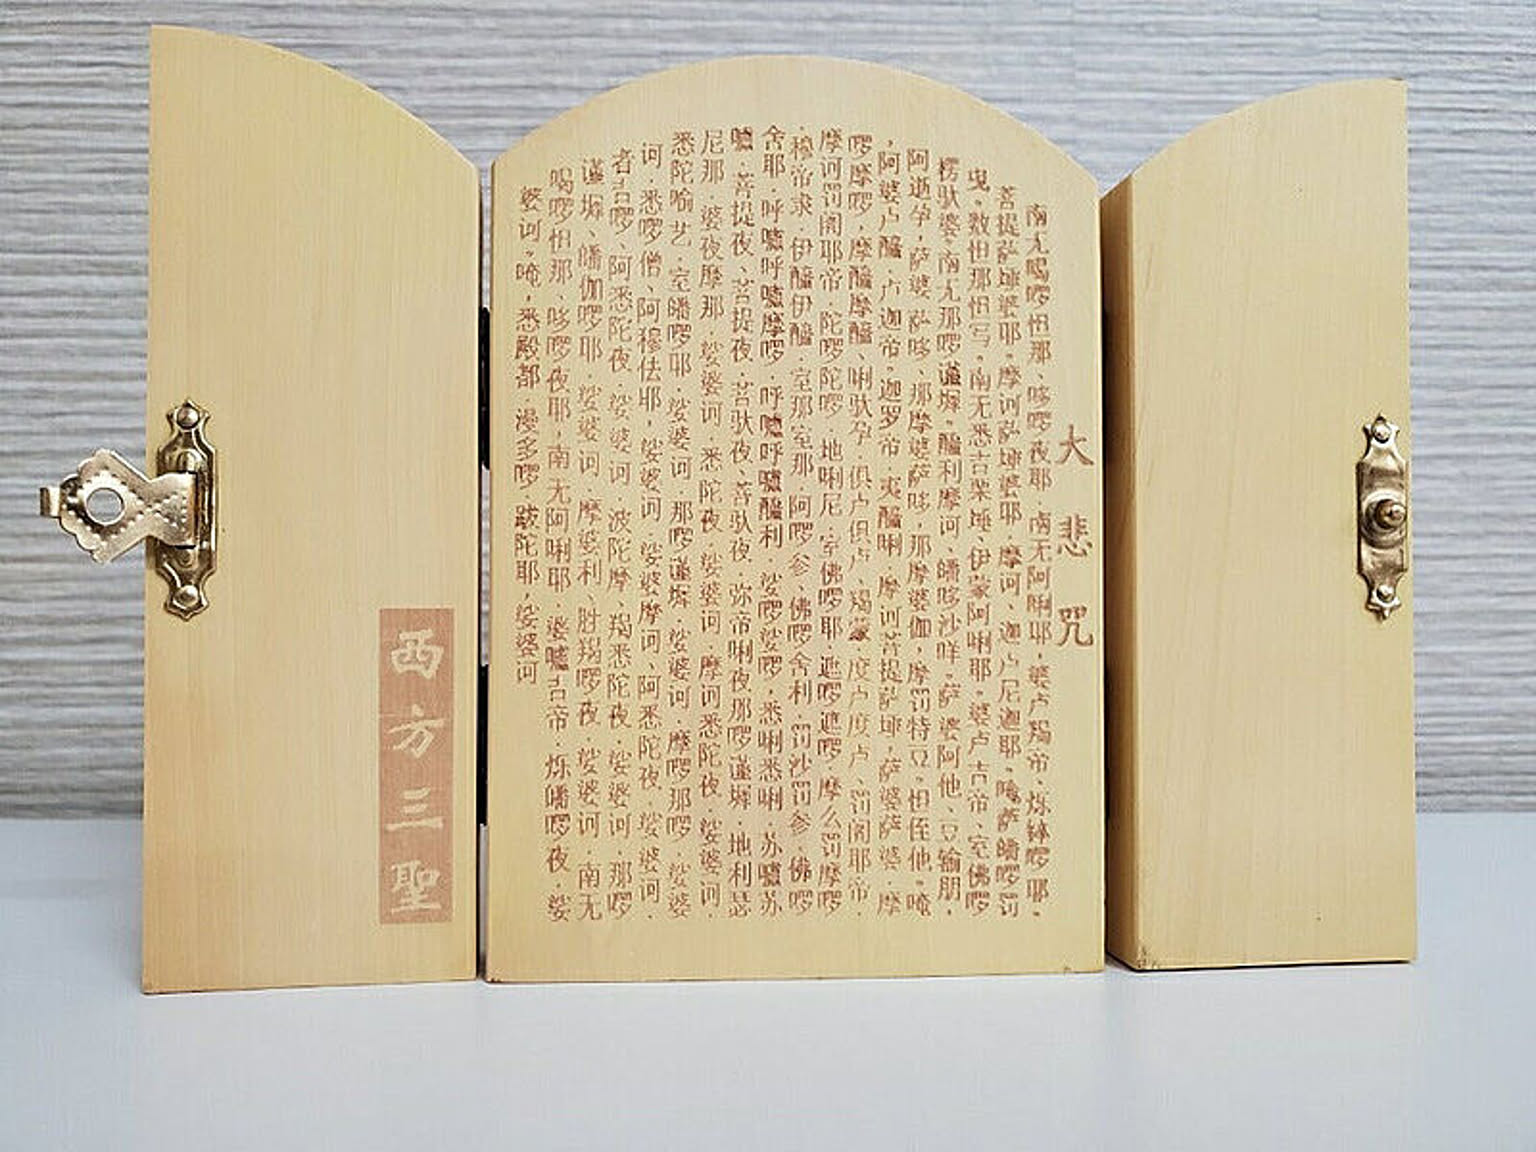 大悲咒
南无喝啰怛那、哆啰夜耶．南无阿唎耶，婆卢羯帝．烁钵啰耶．
菩提萨埵婆耶．摩诃萨埵婆耶．摩诃、迦卢尼迦耶．唵萨皤啰罚
曳．数怛那怛写．南无悉吉栗埵、伊蒙阿唎耶．婆卢吉帝、室佛啰
楞驮婆．南无那啰谨墀．醯利摩诃、皤哆沙咩．萨婆阿他、豆输朋，
阿逝孕，萨婆萨哆、那摩婆萨哆，那摩婆伽，摩罚特豆．怛侄他．唵
，阿婆卢醯．卢迦帝．迦罗帝．夷醯唎．摩诃菩提萨埵，萨婆萨婆．摩
啰摩啰，摩醯摩醯、唎驮孕．俱卢俱卢、羯蒙．度卢度卢、罚阇耶帝．
摩诃罚阇耶帝．陀啰陀啰．地唎尼．室佛啰耶．遮啰遮啰．摩么罚摩啰
．穆帝隶．伊醯伊醯．室那室那．阿啰参、佛啰舍利．罚沙罚参．佛啰
舍耶．呼嚧呼嚧摩啰．呼嚧呼嚧醯利．娑啰娑啰，悉唎悉唎．苏嚧苏
嚧．菩提夜、菩提夜．菩驮夜、菩驮夜．弥帝唎夜那啰谨墀．地利瑟
尼那．婆夜摩那．娑婆诃．悉陀夜．娑婆诃．摩诃悉陀夜．娑婆诃．
悉陀喻艺．室皤啰耶．娑婆诃．那啰谨墀．娑婆诃．摩啰那啰．娑婆
诃．悉啰僧、阿穆佉耶，娑婆诃．娑婆摩诃、阿悉陀夜．娑婆诃．
者吉啰、阿悉陀夜．娑婆诃．波陀摩、羯悉陀夜．娑婆诃．那啰
谨墀、皤伽啰耶．娑婆诃．摩婆利、胜羯啰夜．娑婆诃．南无
喝啰怛那、哆啰夜耶，南无阿唎耶．婆嚧吉帝．烁皤啰夜．娑
婆诃．唵，悉殿都．漫多啰．跋陀耶，娑婆诃
西方三聖